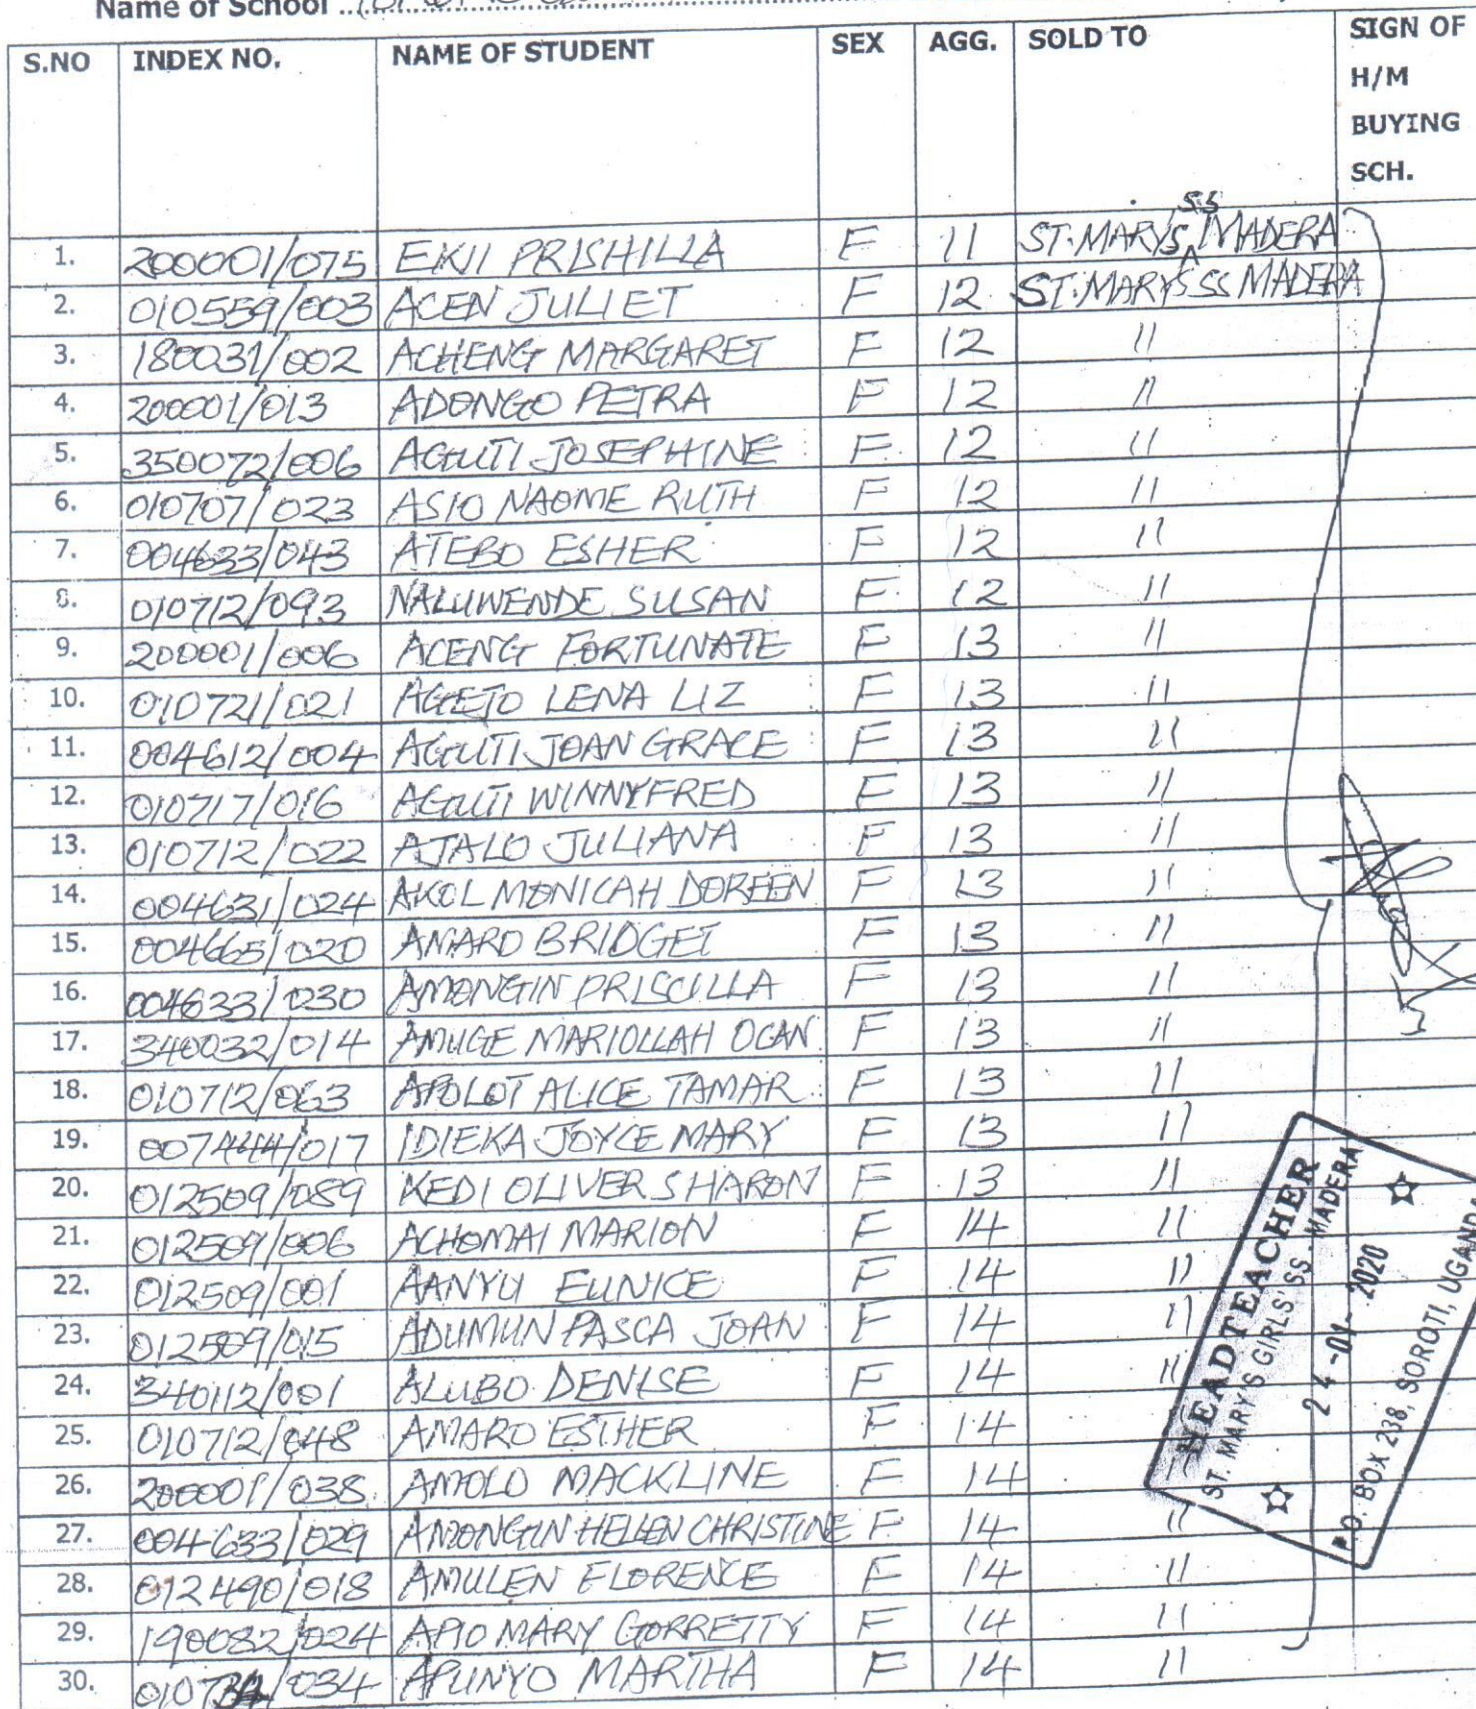 Name of School
S.NO INDEX NO. NAME OF STUDENT SEX AGG. SOLD TO SIGN OF H/M BUYING SCH.
1. 200001/075 EKII PRISHILLA F 11 ST. MARY'S SS MADERA
2. 010559/003 ACEN JULIET F 12 ST. MARY'S SS MADERA
3. 180031/002 ACHENG MARGARET F 12 "
4. 200001/013 ADONGO PETRA F 12 "
5. 350072/006 AGUTI JOSEPHINE F 12 "
6. 010707/023 ASIO NAOME RUTH F 12 "
7. 004633/043 ATEBO ESHER F 12 "
8. 010712/093 NALUWENDE SUSAN F 12 "
9. 200001/006 ACENG FORTUNATE F 13 "
10. 010721/021 AGETO LENA LIZ F 13 "
11. 004612/004 AGUTI JOAN GRACE F 13 "
12. 010717/016 AGUTI WINNYFRED F 13 "
13. 010712/022 AJALO JULIANA F 13 "
14. 004631/024 AKOL MONICAH DOREEN F 13 "
15. 004665/020 AMARO BRIDGET F 13 "
16. 004633/030 AMONGIN PRISCILLA F 13 "
17. 340032/014 AMUGE MARIOLLAH OCAN F 13 "
18. 010712/063 APOLOT ALICE TAMAR F 13 "
19. 007444/017 IDIEKA JOYCE MARY F 13 "
20. 012509/089 KEDI OLIVER SHARON F 13 "
21. 012509/006 ACHOMAI MARION F 14 "
22. 012509/001 AANYU EUNICE F 14 "
23. 012509/015 ADUMUN PASCA JOAN F 14 "
24. 340112/001 ALUBO DENISE F 14 "
25. 010712/048 AMARO ESTHER F 14 "
26. 200001/038 AMOLO MACKLINE F 14 "
27. 004633/029 AMONGIN HELLEN CHRISTINE F 14 "
28. 012490/018 AMULEN FLORENCE F 14 "
29. 190082/024 APIO MARY GORRETTY F 14 "
30. /034 APUNYO MARTHA F 14 "
HEADTEACHER
ST. MARY'S GIRLS' SS - MADERA
24-01-2020
P.O. BOX 238, SOROTI, UGANDA